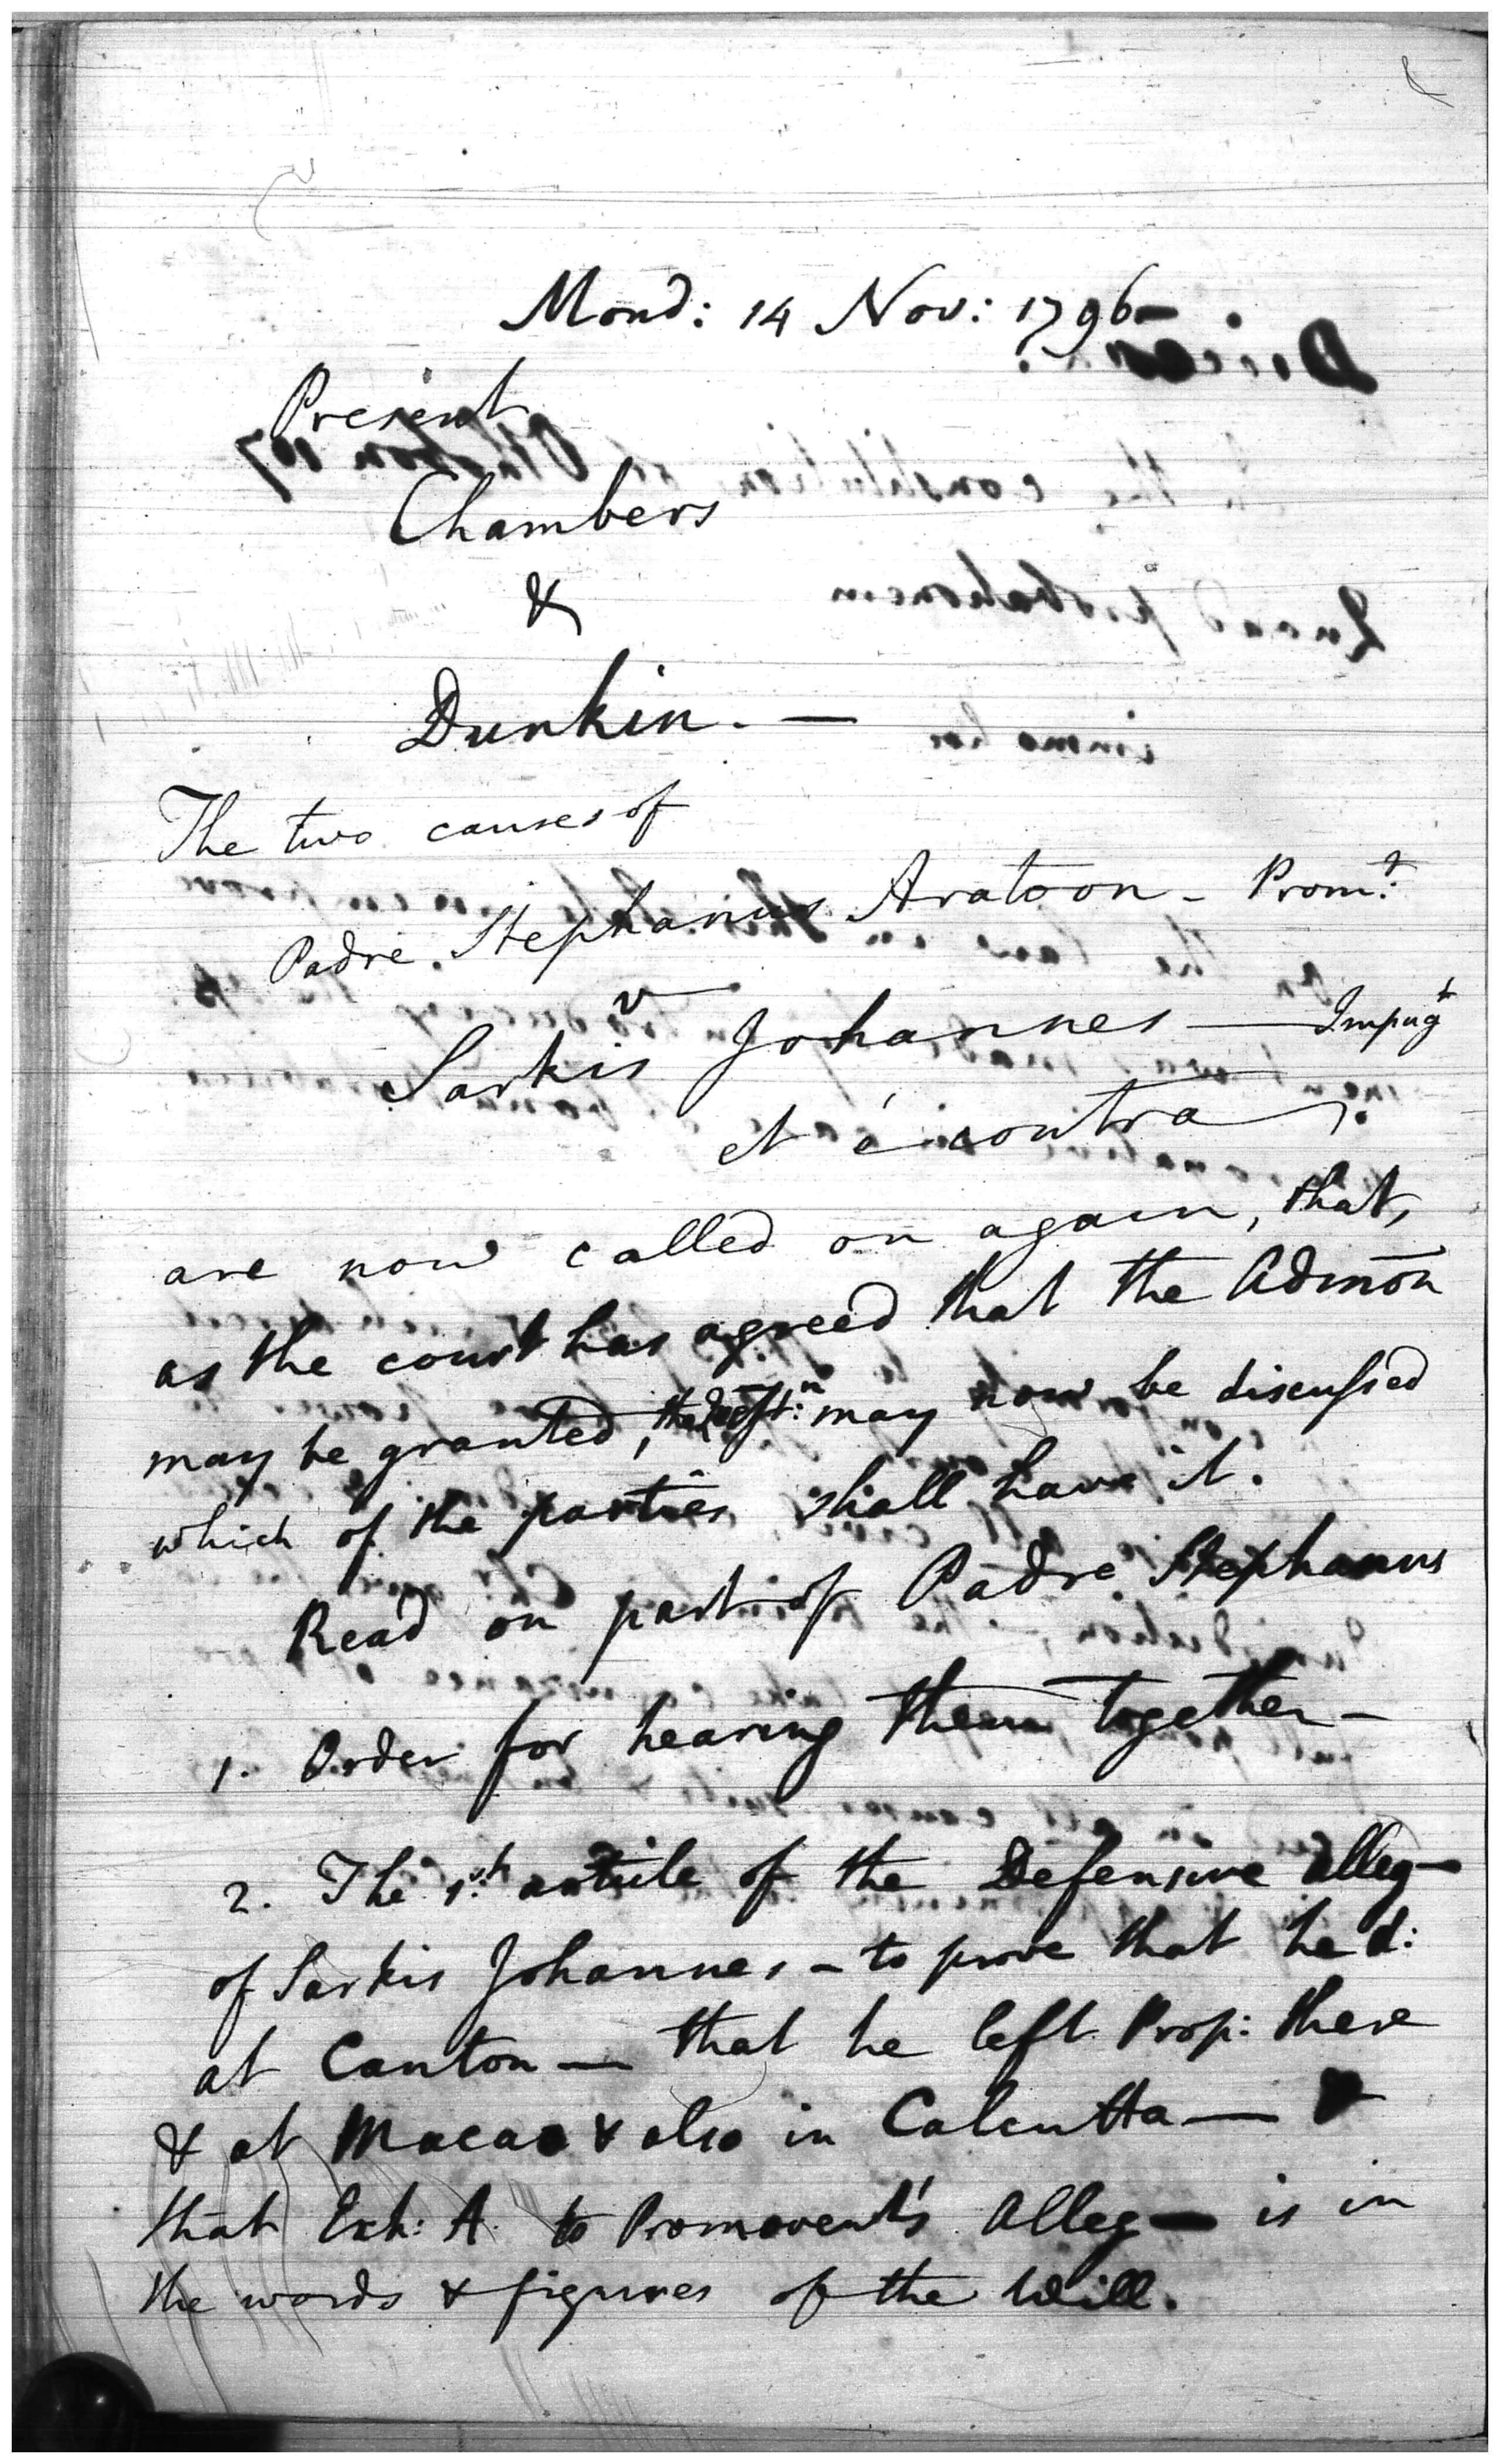 Mond: 14 Nov: 1796–
Present
Chambers
&
Dunkin. —
The two causes of
Padre Stephanus Aratoon – Prom.t
v
Sarkis Johannes — Impug.t
et é contra
are now called on again, that,
as the court has agreed that the Admōn
may be granted, the Quest:n may now be discussed
which of the parties shall have it.
Read on part of Padre Stephanus
1. Order for hearing them together –
2. The 1.st article of the Defensive Alleg—
of Sarkis Johannes – to prove that he d:
at Canton — that he left Prop: there
& at Macao & also in Calcutta —
that Exh: A. to Promovent's Alleg — is in
the words & figures of the Will.